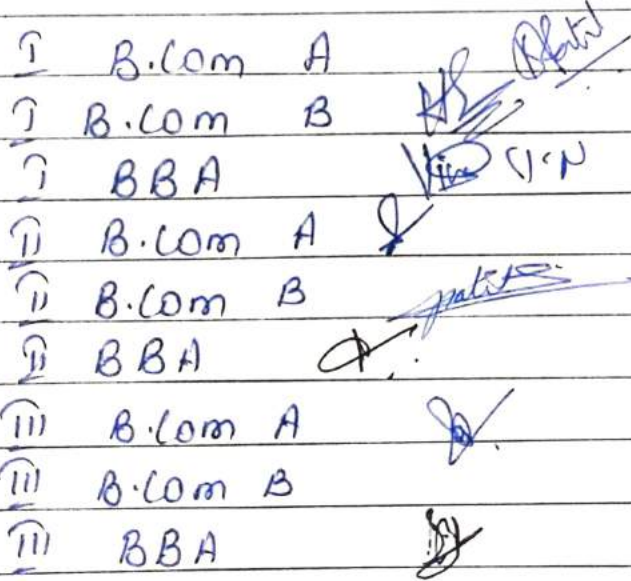 I B.Com A
I B.Com B
I BBA
II B.Com A
II B.Com B
II BBA
III B.Com A
III B.Com B
III BBA